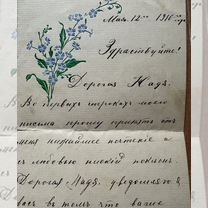 Мая. 12го 1910 го
Здравствуйте!
Дорогая Надя.
Во первых строках моего
письма прошу принять отъ
меня нижайшее почтение и
съ любовью низкий поклонъ.
Дорогая Надя, уведомляю
васъ въ томъ что ваше